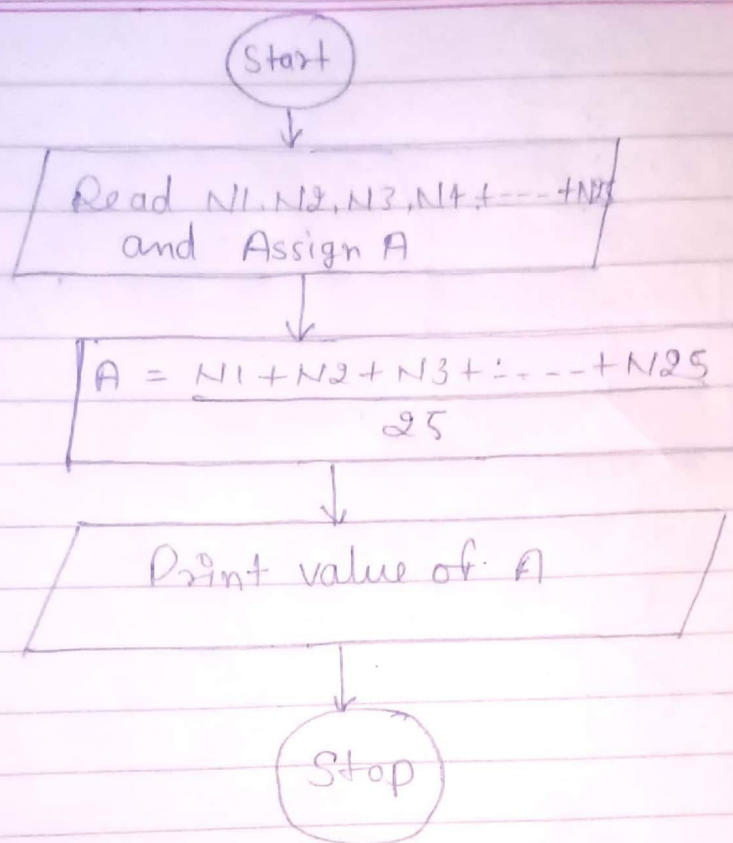 Start
Read N1, N2, N3, N4 + ---- + N25
and Assign A
A = N1 + N2 + N3 + ----- + N25
25
Print value of A
Stop